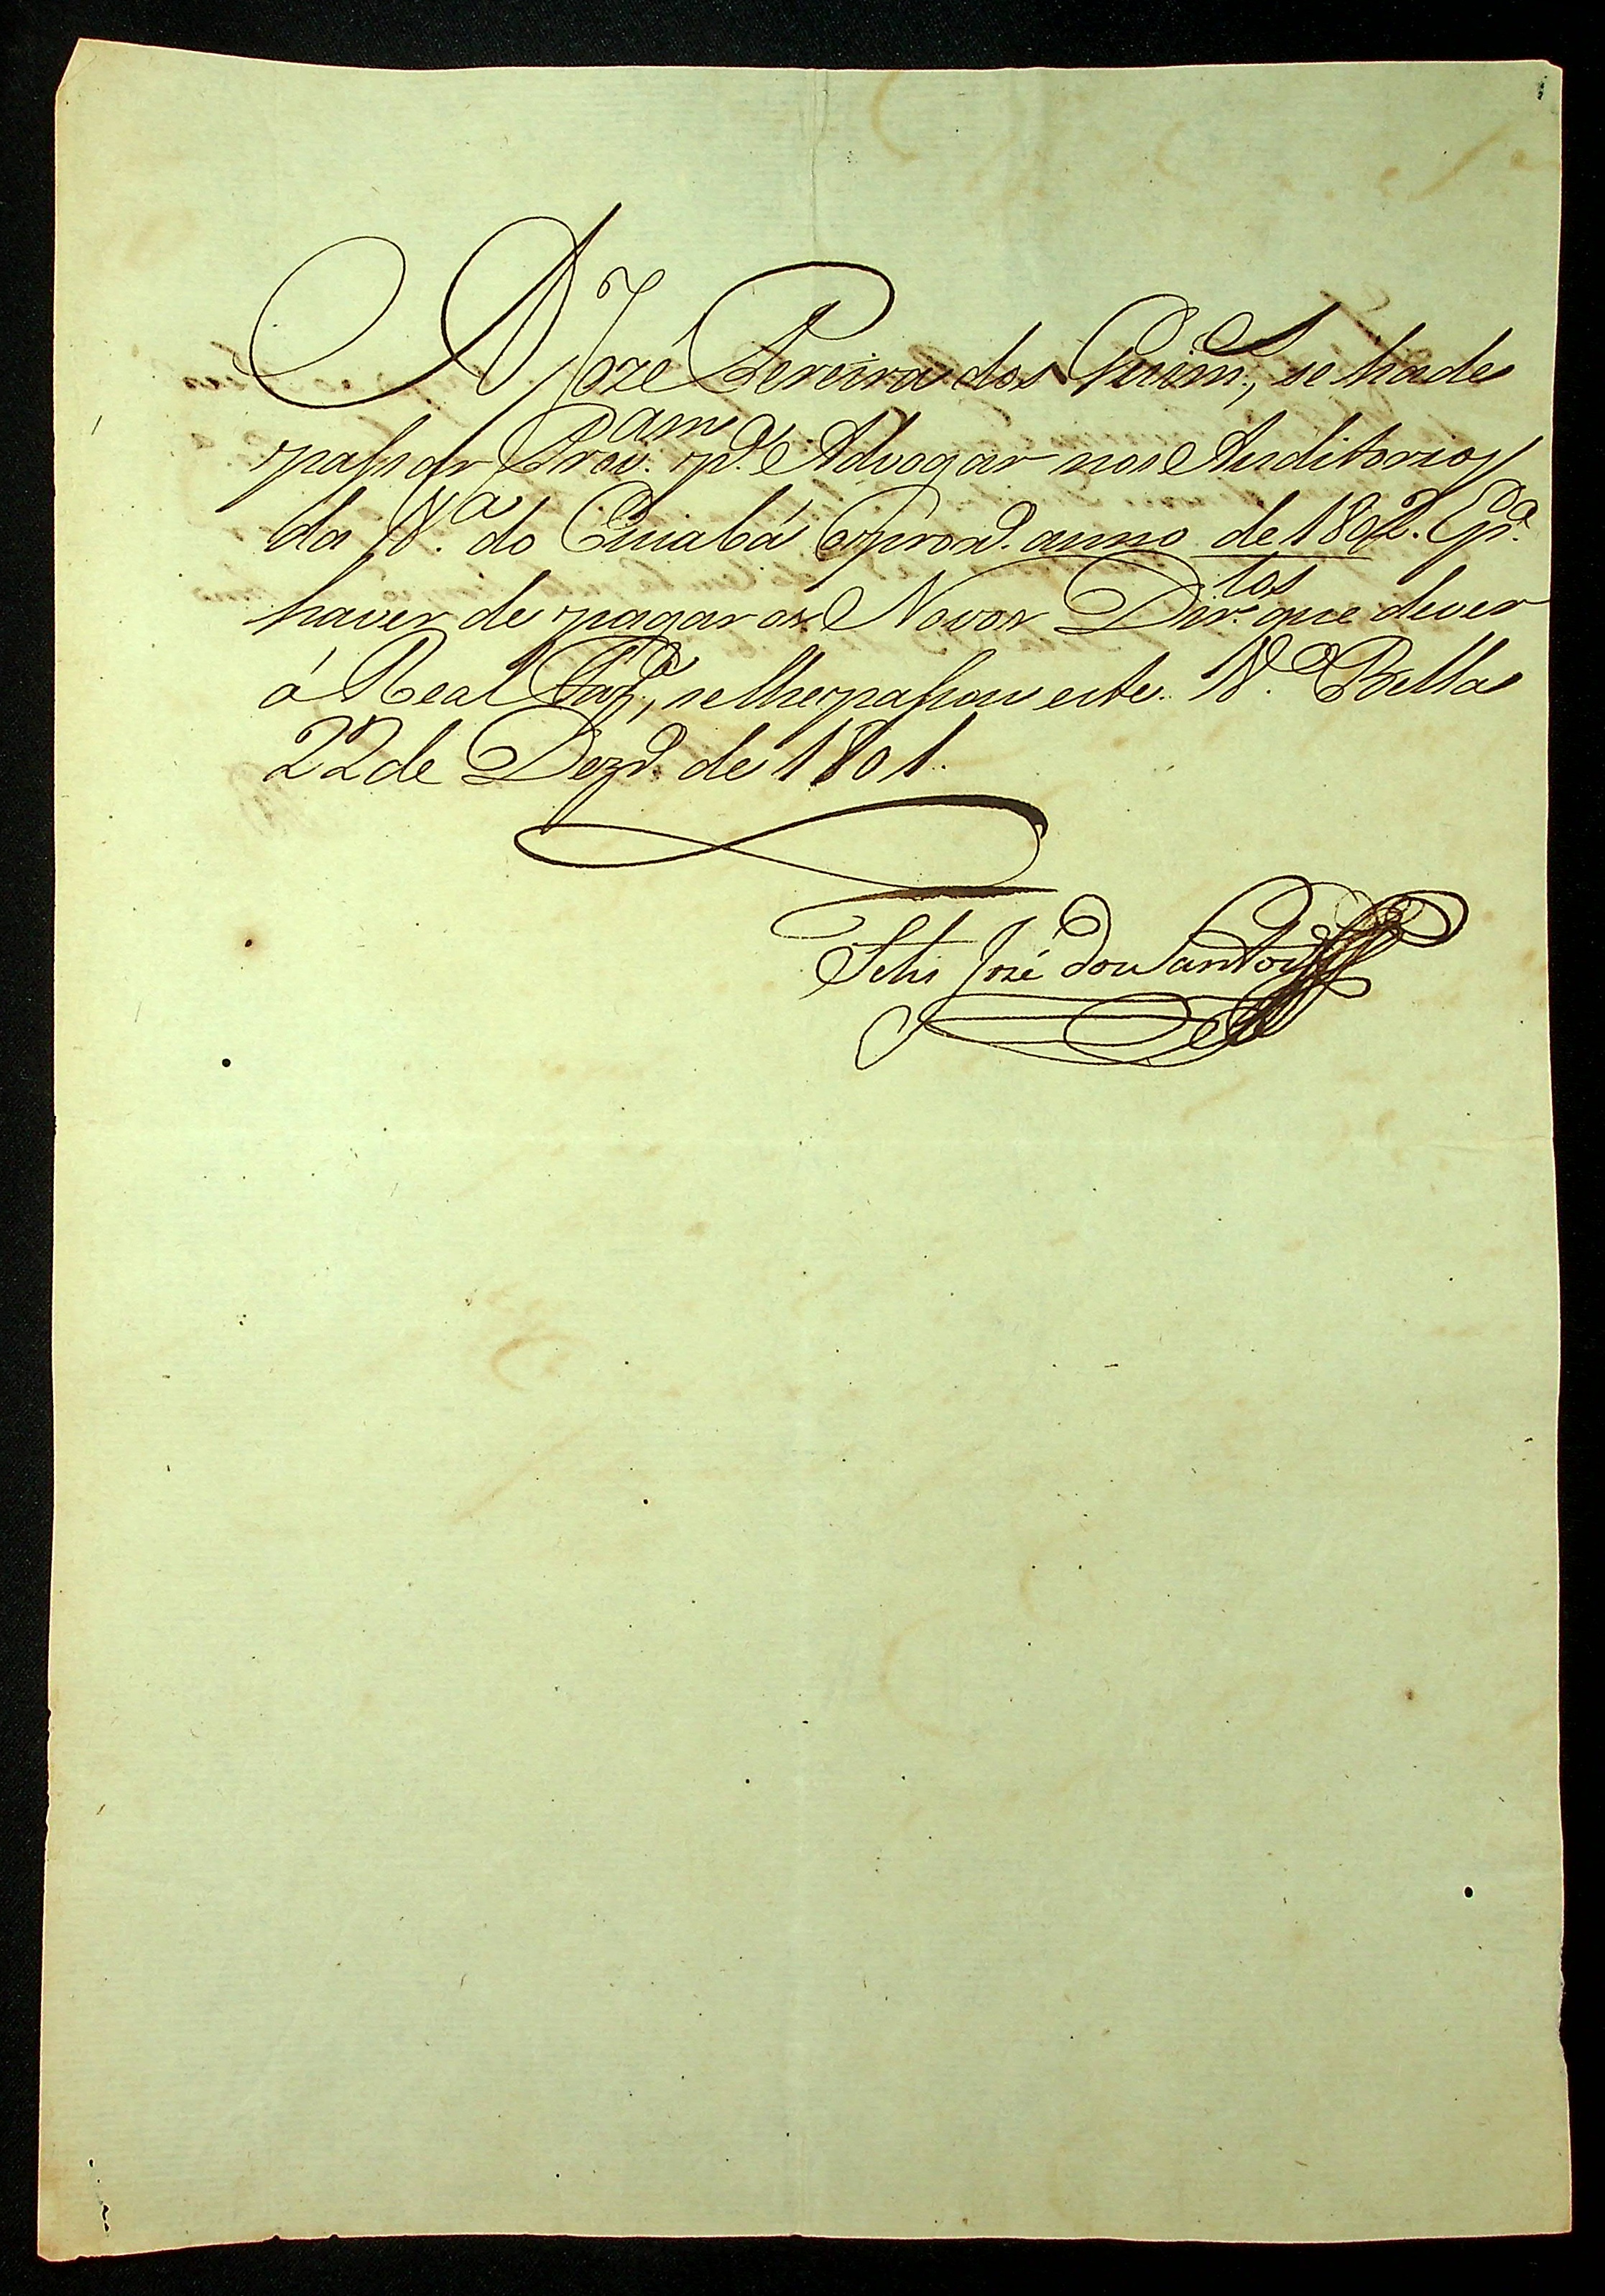 A Jozé Pereira dos Guim.es, se hade
passar Prov.am p.a Advogar nos Auditorios
da V.a do Cuiabá o prox.o anno de 1802. E p.a
haver de pagar os Novos Dir.tos que dever
á Real Faz.da, se lhe passou este. V.a Bella
22 de Dezr.o de 1801.
José dos Santos